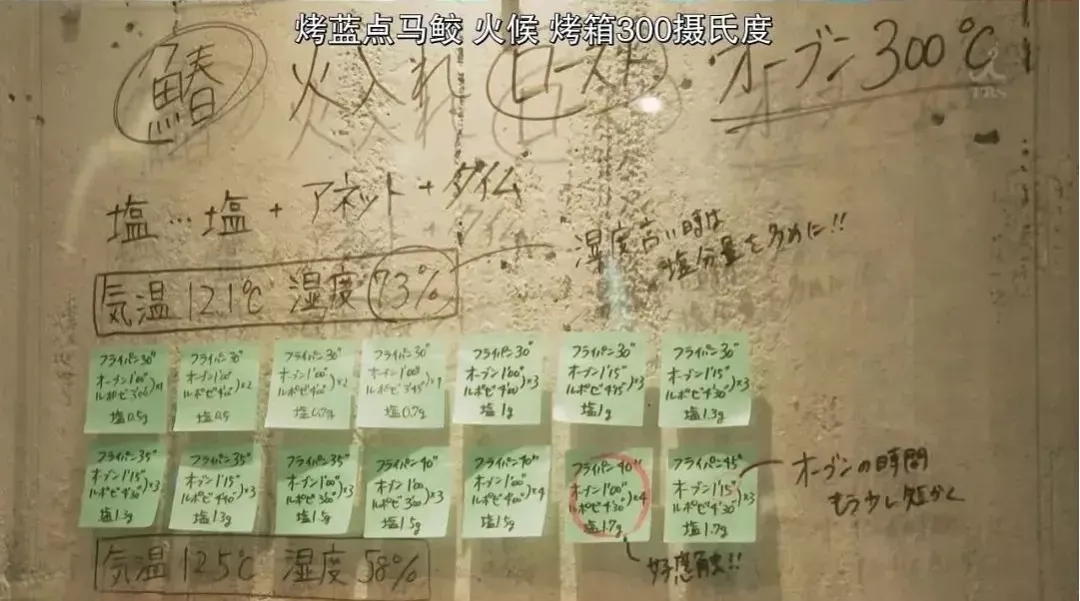 烤蓝点马鲛 火候 烤箱300摄氏度
鰆 火入れ ロースト オーブン300℃
TBS
塩…塩+アネット+タイム
湿度高い時は
塩分量を多めに!!
気温12.1℃ 湿度73%
フライパン30"
オーブン1'00"
ルポゼ3'00")×1
塩0.5g
フライパン30"
オーブン1'00"
ルポゼ4'00")×2
塩0.5
フライパン30"
オーブン1'00"
ルポゼ4'00")×2
塩0.7g
フライパン30"
オーブン1'00"
ルポゼ3'45")×1
塩0.7g
フライパン30"
オーブン1'00"
ルポゼ4'00")×3
塩1g
フライパン30"
オーブン1'15"
ルポゼ4'15")×3
塩1g
フライパン30"
オーブン1'15"
ルポゼ4'30")×3
塩1.3g
フライパン35"
オーブン1'15"
ルポゼ4'30")×3
塩1.3g
フライパン35"
オーブン1'15"
ルポゼ4'40")×3
塩1.3g
フライパン35"
オーブン1'00"
ルポゼ3'30")×3
塩1.5g
フライパン40"
オーブン1'00
ルポゼ3'00")×3
塩1.5g
フライパン40"
オーブン1'00"
ルポゼ4'00")×4
塩1.5g
フライパン40"
オーブン1'00"
ルポゼ4'30")×4
塩1.7g
フライパン45"
オーブン1'15"
ルポゼ4'30")×3
塩1.7g
オーブンの時間
もう少し短かく
好感触!!
気温12.5℃ 湿度58%